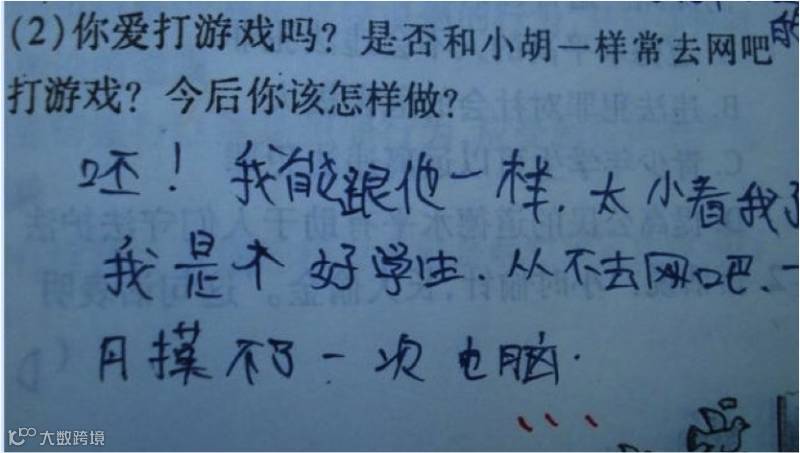 (2)你爱打游戏吗？是否和小胡一样常去网吧
打游戏？今后你该怎样做？
呸！我能跟他一样.太小看我了
我是个好学生.从不去网吧.一
月摸不了一次电脑.
大数跨境